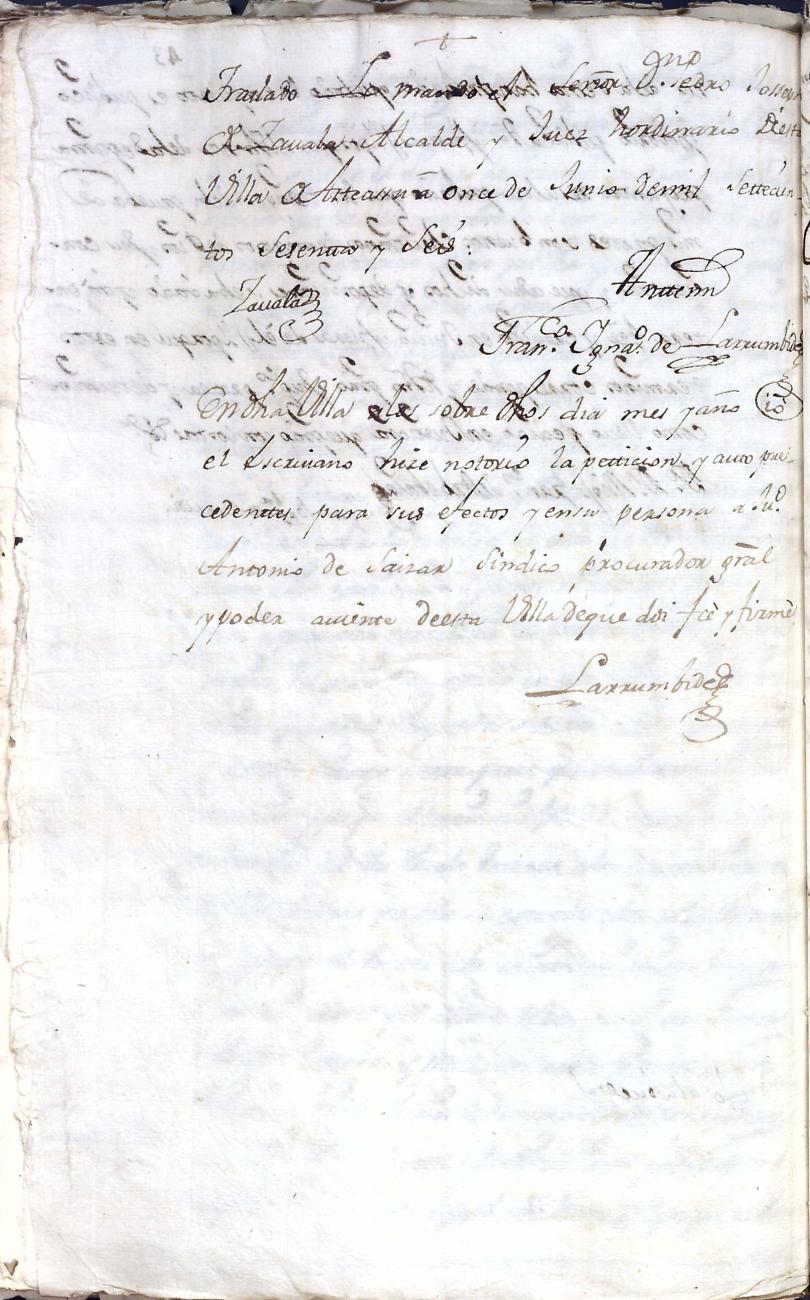 Traslado Lo mando el Señor D. Pedro Joseph
de Zavala Alcalde y Juez hordinario desta
Villa de Asteassu a once de Junio de mil settecien
tos sesenta y seis.
Zavala
Ante mi
Fran.co Ygna.o de Larrumbide
En dha Villa a los sobre dhos dia mes y año io
el escrivano hize notorio la petticion y auto pre
cedenttes para sus efectos y en su persona a Ju.o
Antonio de Saizar sindico procurador gral
y poder aviente de esta Villa de que doi feè y firmè
Larrumbide